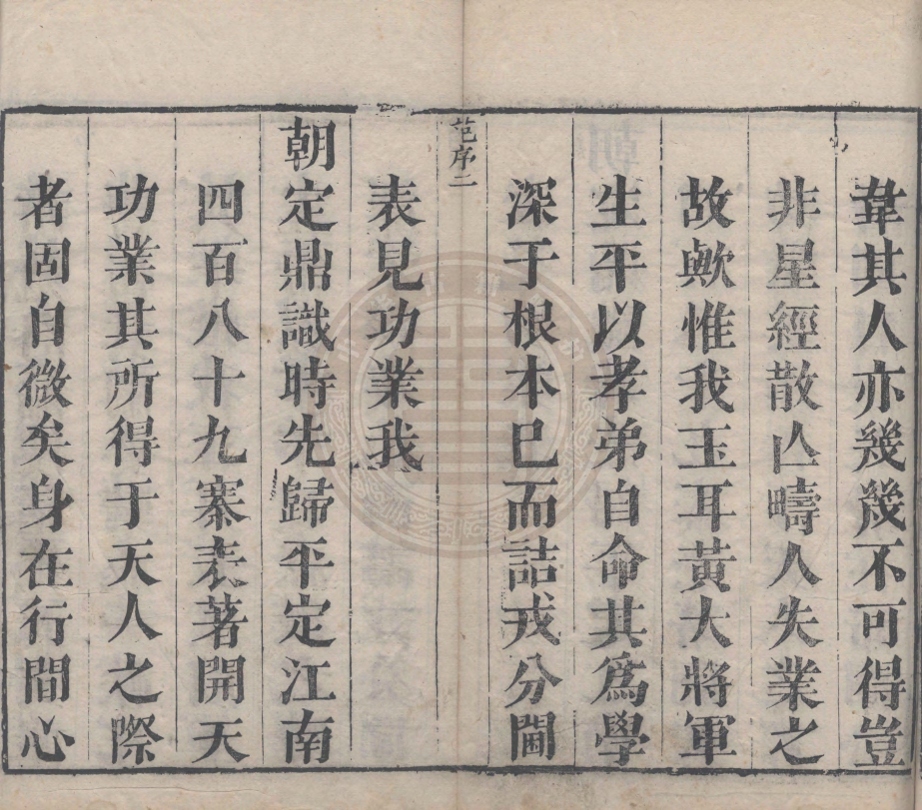 韋其人亦幾幾不可得豈
非星經散亾疇人失業之
故歟惟我玉耳黃大將軍
生平以孝弟自命其爲學
深于根本已而詰戎分閫
范序二
表見功業我
朝定鼎識時先歸平定江南
四百八十九寨表著開天
功業其所得于天人之際
者固自微矣身在行間心